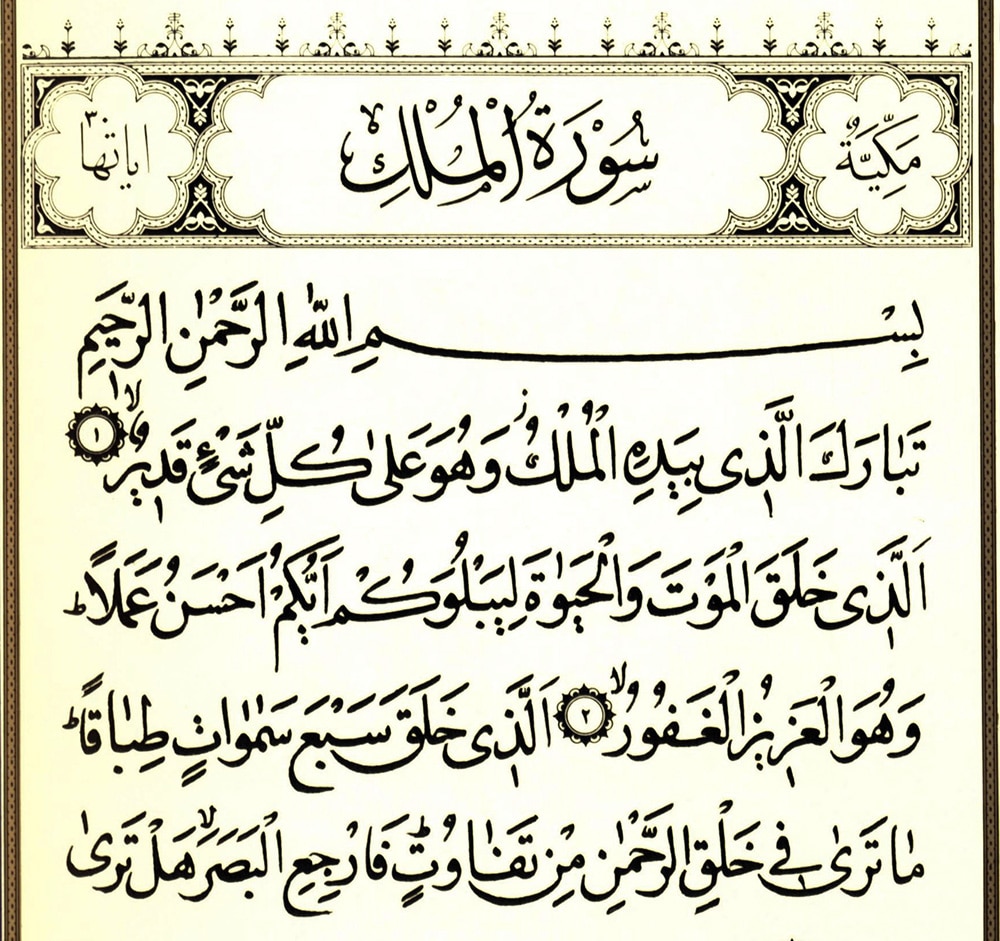 مَكِّيَّةٌ سُورَةُ الْمُلْكِ اياتها ٣٠
بِسْمِ اللّٰهِ الرَّحْمٰنِ الرَّحٖيمِ
تَبَارَكَ الَّذٖى بِيَدِهِ الْمُلْكُؗ وَهُوَ عَلٰى كُلِّ شَىْءٍ قَدٖيرٌۙ ﴿١﴾
اَلَّذٖى خَلَقَ الْمَوْتَ وَالْحَيٰوةَ لِيَبْلُوَكُمْ اَيُّكُمْ اَحْسَنُ عَمَلًاؕ
وَهُوَ الْعَزٖيزُ الْغَفُورُۙ ﴿٢﴾ اَلَّذٖى خَلَقَ سَبْعَ سَمٰوَاتٍ طِبَاقًاؕ
مَا تَرٰى فٖى خَلْقِ الرَّحْمٰنِ مِنْ تَفَاوُتٍؕ فَارْجِعِ الْبَصَرَۙ هَلْ تَرٰى